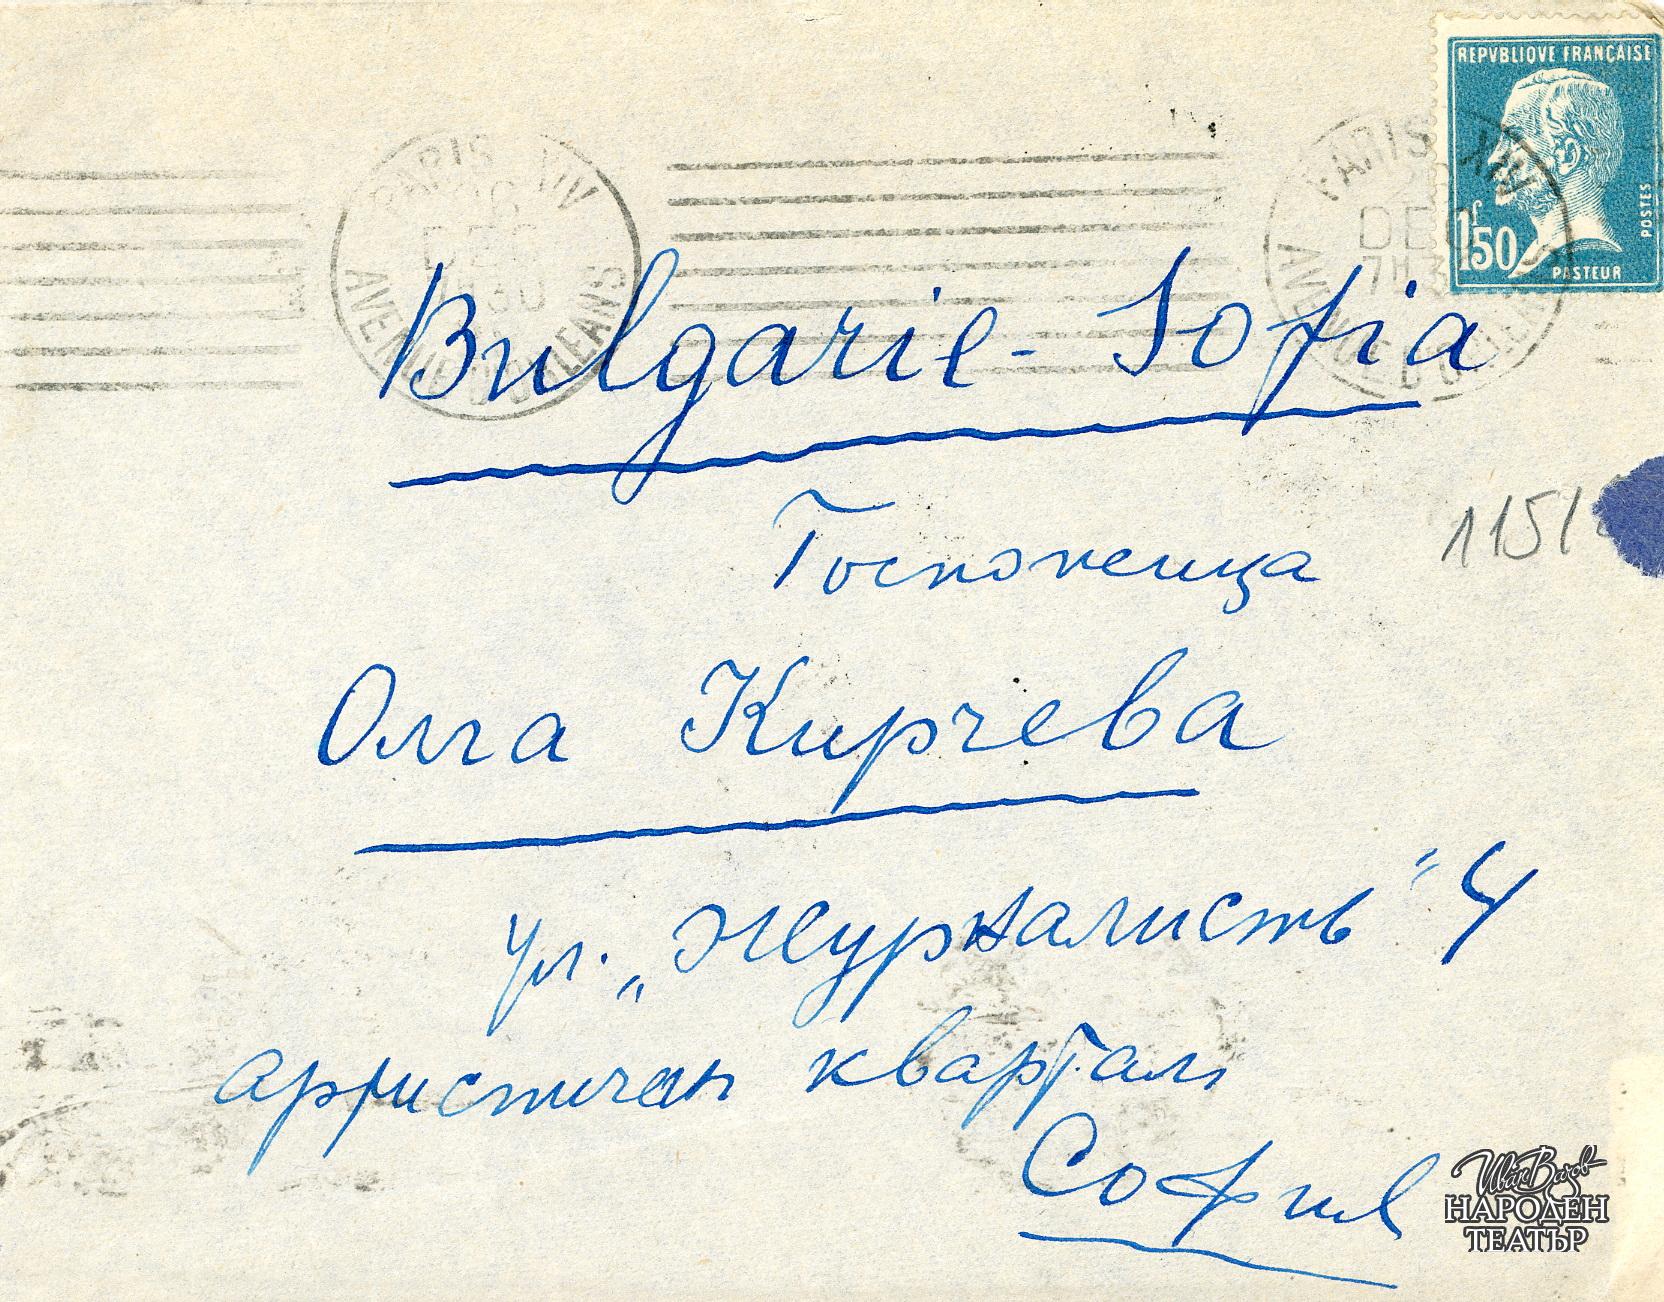 REPVBLIQVE FRANÇAISE
1f50
POSTES
PASTEUR
PARIS XIV
DEC
7H30
AVENUE D'ORLEANS
PARIS XIV
DEC
7H3
AVENUE D'ORLEANS
Bulgarie - Sofia
Госпожица
1151
Олга Кирчева
ул. „Журналистъ" 4
артистичен квартал
София
Иван Вазов
НАРОДЕН
ТЕАТЪР